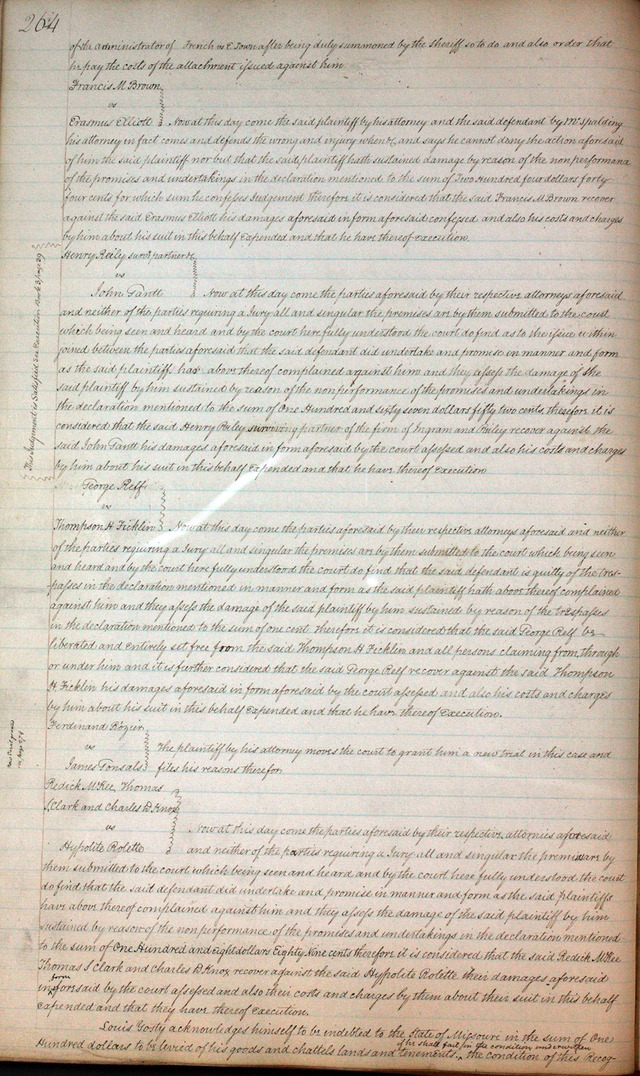 264
of the administrator of French in E Town after being duly summoned by the Sheriff so to do and also order that
he pay the costs of the attachment issued against him
Francis M Brown
vs
Erasmus Elliott Now at this day come the said plaintiff by his attorney and the said defendant by Mr Spalding
his attorney in fact comes and defends the wrong and injury when &c, and says he cannot deny the action aforesaid
of him the said plaintiff nor but that the said plaintiff hath sustained damage by reason of the non performance
of the promises and undertakings in the declaration mentioned to the sum of Two Hundred four dollars forty
four cents for which sum he confesses Judgement therefore it is considered that the said Francis M Brown recover
against the said Erasmus Elliott his damages aforesaid in form aforesaid confessed and also his costs and charges
by him about his suit in this behalf Expended and that he have thereof execution.
Henry Reily surv partner &c
vs
John Tantt Now at this day come the parties aforesaid by their respective attorneys aforesaid
and neither of the parties requiring a Jury all and singular the premises are by them submitted to the court
which being seen and heard and by the court here fully understood the court do find as to the issue within
joined between the parties aforesaid that the said defendant did undertake and promise in manner and form
as the said plaintiff hath above thereof complained against him and they assess the damage of the
said plaintiff by him sustained by reason of the nonperformance of the promises and undertakings in
the declaration mentioned to the sum of One Hundred and sixty seven dollars fifty two cents, therefore it is
considered that the said Henry Reily surviving partner of the firm of Ingram and Reily recover against the
said John Tantt his damages aforesaid in form aforesaid by the court assessed and also his costs and charges
by him about his suit in this behalf Expended and that he have thereof Execution
The Judgment is Satisfied See Execution Book B page 39
George Relf
vs
Thompson H Ficklin Now at this day come the parties aforesaid by their respective attorneys aforesaid and neither
of the parties requiring a Jury all and singular the premises are by them submitted to the court which being seen
and heard and by the court here fully understood the court do find that the said defendant is guilty of the tres-
passes in the declaration mentioned in manner and form as the said plaintiff hath above thereof complained
against him and they assess the damage of the said plaintiff by him sustained by reason of the trespasses
in the declaration mentioned to the sum of one cent. therefore it is considered that the said George Relf be
liberated and Entirely set free from the said Thompson H Ficklin and all persons claiming from, through
or under him and it is further considered that the said George Relf recover against the said Thompson
H Ficklin his damages aforesaid in form aforesaid by the court assessed and also his costs and charges
by him about his suit in this behalf Expended and that he have thereof Execution.
Ferdinand Rozier
vs The plaintiff by his attorney moves the court to grant him a new trial in this case and
James Tonsals files his reasons therefor
Redick McKee Thomas
S Clark and Charles D Knox
vs Now at this day come the parties aforesaid by their respective attornies aforesaid
Hypolite Rolette and neither of the parties requiring a Jury all and singular the premises are by
them submitted to the court which being seen and heard and by the court here fully understood the court
do find that the said defendant did undertake and promise in manner and form as the said plaintiffs
have above thereof complained against him and they assess the damage of the said plaintiff by him
sustained by reason of the non performance of the promises and undertakings in the declaration mentioned
to the sum of One Hundred and Eight dollars Eighty Nine cents therefore it is considered that the said Redick McKee
Thomas S Clark and Charles D Knox recover against the said Hypolite Rolette their damages aforesaid
in form aforesaid by the court assessed and also their costs and charges by them about their suit in this behalf
Expended and that they have thereof execution.
Louis Yosty acknowledges himself to be indebted to the State of Missouri in the sum of One
if he shall fail in the condition underwritten
Hundred dollars to be levied of his goods and chattels lands and tenements, the condition of this Recog-